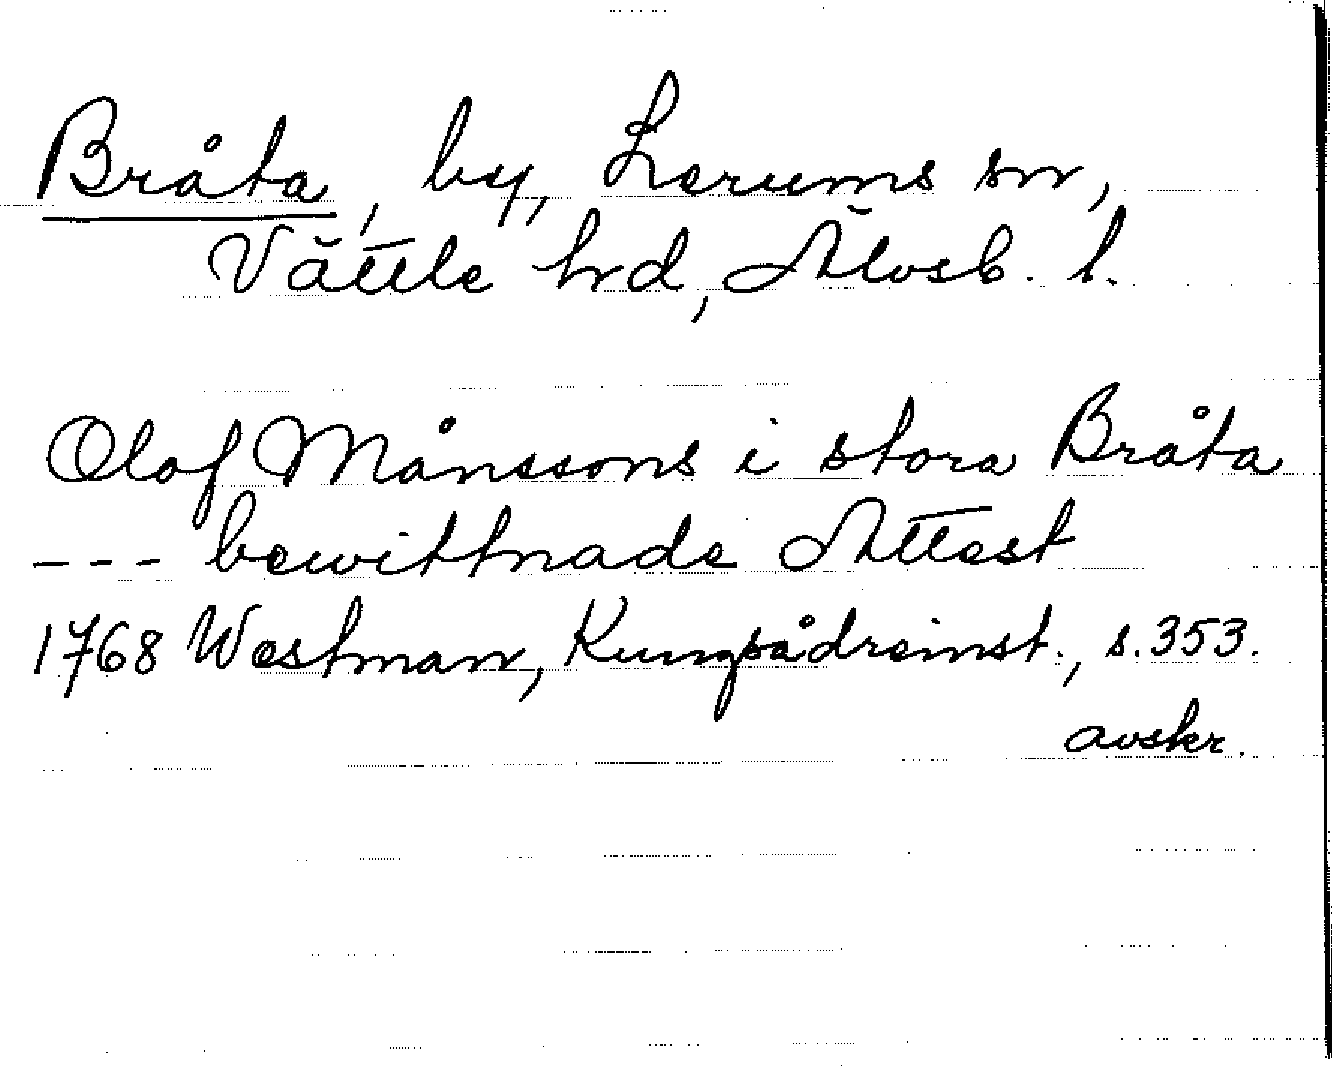 Bråta, by, Lerums sn,
Vättle hd, Älvsb. l.
Olof Månssons i stora Bråta
--- bewittnade Attest
1768 Westman, Kungsådreinst., s.353.
avskr.